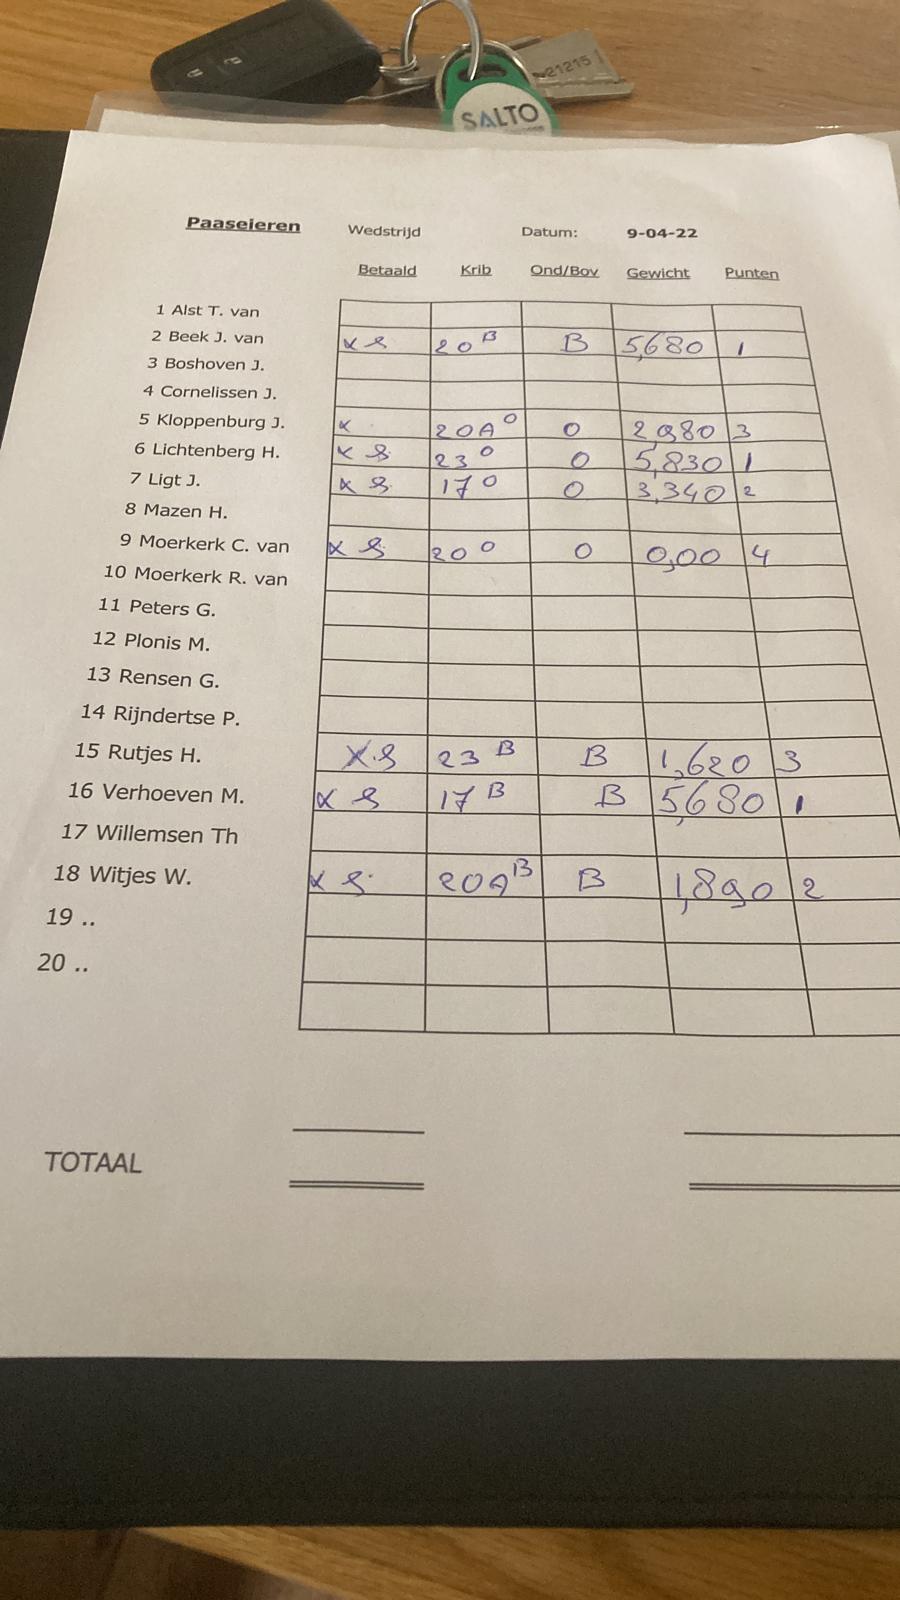 21215
SALTO
Paaseieren Wedstrijd Datum: 9-04-22
Betaald Krib Ond/Bov Gewicht Punten
1 Alst T. van
2 Beek J. van x S 20 B B 5,680 1
3 Boshoven J.
4 Cornelissen J.
5 Kloppenburg J. x 20A O O 2,980 3
6 Lichtenberg H. x S 23 O O 5,830 1
7 Ligt J. x S 17 O O 3,340 2
8 Mazen H.
9 Moerkerk C. van x S 20 O O 0,00 4
10 Moerkerk R. van
11 Peters G.
12 Plonis M.
13 Rensen G.
14 Rijndertse P.
15 Rutjes H. X S 23 B B 1,620 3
16 Verhoeven M. x S 17 B B 5,680 1
17 Willemsen Th
18 Witjes W. x S 20A B B 1,890 2
19 ..
20 ..
TOTAAL